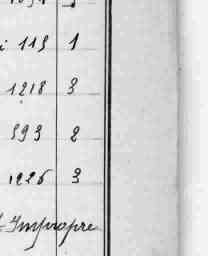 i 113 1
1218 3
393 2
1226 3
Impropre